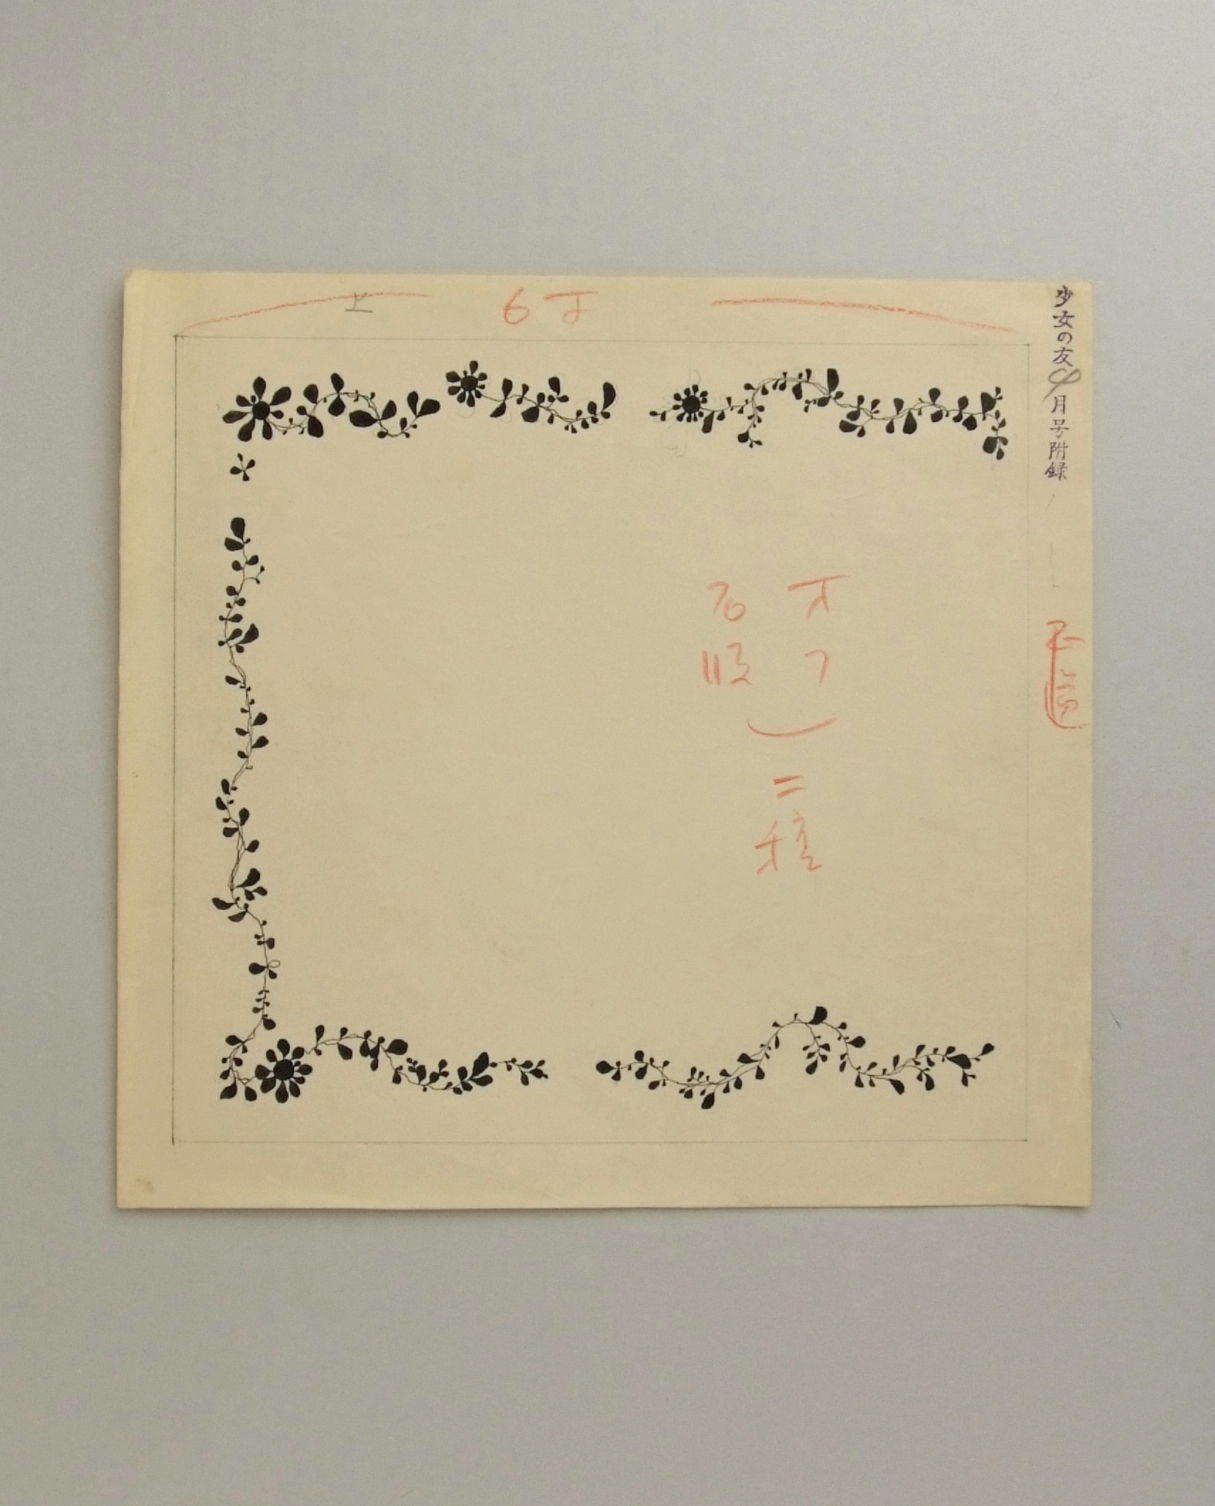 上
6寸
少女の友4月号附録
オフ
石版
二種